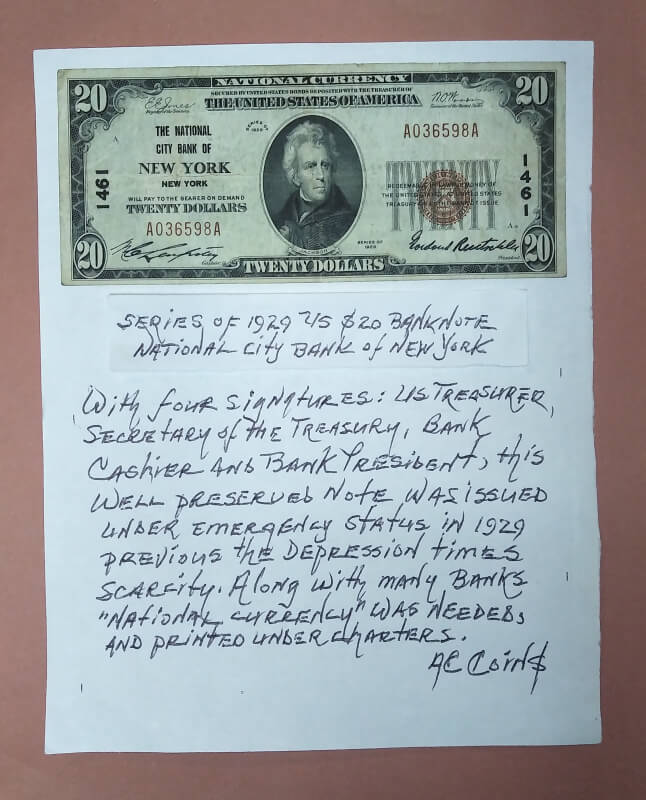 NATIONAL CURRENCY
SECURED BY UNITED STATES BONDS DEPOSITED WITH THE TREASURER OF
THE UNITED STATES OF AMERICA
20
20
E.E. Jones
Register of the Treasury
W.O. Woods
SERIES OF 1929
A036598A
THE NATIONAL
CITY BANK OF
NEW YORK
NEW YORK
WILL PAY TO THE BEARER ON DEMAND
TWENTY DOLLARS
A036598A
1461
1461
REDEEMABLE IN LAWFUL MONEY OF
THE UNITED STATES AT UNITED STATES
TREASURY OR AT THE BANK OF ISSUE
TWENTY
JACKSON
SERIES OF
1929
Cashier
President
20
20
TWENTY DOLLARS
SERIES OF 1929 US $20 BANKNOTE
NATIONAL CITY BANK of NEW YORK
With four signatures: US TREASURER,
SECRETARY of the TREASURY, BANK
CASHIER AND BANK PRESIDENT, this
WELL PRESERVED NOTE WAS ISSUED
UNDER EMERGENCY STATUS IN 1929
PREVIOUS the DEPRESSION times
SCARCITY. Along with many BANKS
"NATIONAL CURRENCY" WAS NEEDED,
AND PRINTED UNDER CHARTERS.
AC COIN$